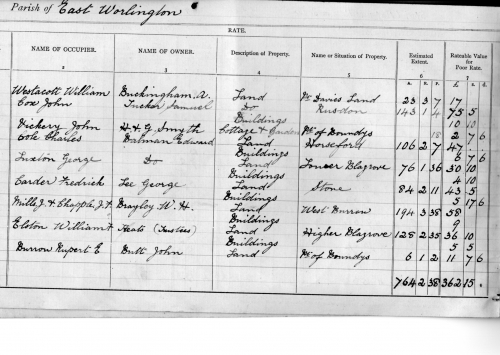 Parish of East Worlington
RATE.
NAME OF OCCUPIER. NAME OF OWNER. Description of Property. Name or Situation of Property. Estimated Extent. Rateable Value for Poor Rate.
2 3 4 5 6 7
A. R. P. £ s. d.
Westacott William Buckingham, A. Land Pt Davies Land 23 3 7 17
Cox John Tucker Samuel Do Rusdon 143 1 4 75 5
Buildings 10 10
Vickery John H & G Smyth Cottage & Garden Pt of Boundys 18 2 7 6
Cole Charles Batman Edward Land Horseford 106 2 7 47
Buildings 6 7 6
Luxton George Do Land Lower Blagrove 76 1 36 30 10
Buildings 4 10
Carder Fredrick Lee George Land Stone 84 2 11 43 5
Buildings 5 17 6
Mills J. & Chapple J. T. Brayley W. H. Land West Burrow 194 3 38 58
Buildings 9
Elston William Keats (Trustees) Land Higher Blagrove 128 2 35 36 10
Buildings 5 5
Burrow Rupert E Butt John Land Pt of Boundys 6 1 2 11 7 6
764 2 38 362 15